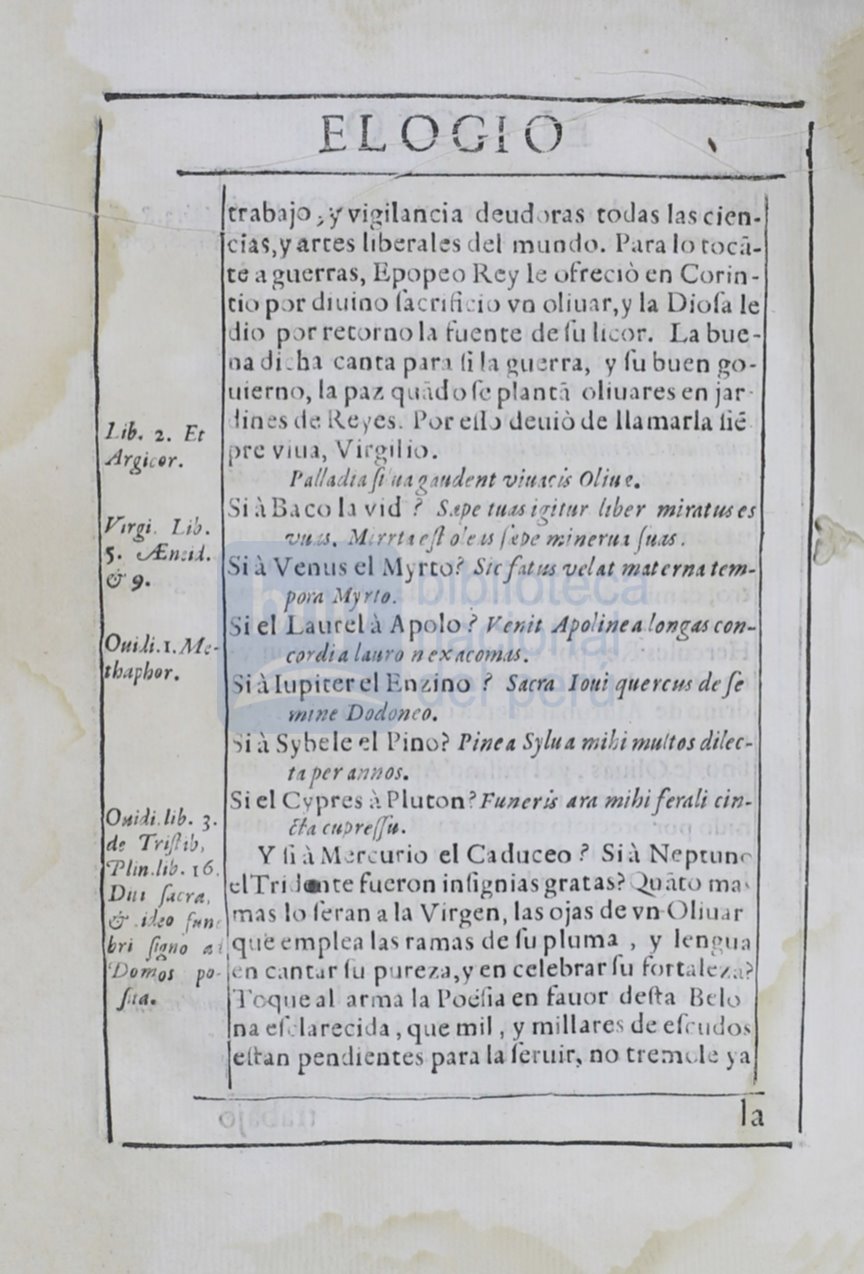 ELOGIO
trabajo, y vigilancia deudoras todas las cien-
cias, y artes liberales del mundo. Para lo tocã-
te a guerras, Epopeo Rey le ofreciò en Corin-
tio por diuino sacrificio vn oliuar, y la Diosa le
dio por retorno la fuente de su licor. La bue-
na dicha canta para si la guerra, y su buen go-
uierno, la paz quãdo se plantã oliuares en jar-
dines de Reyes. Por esso deuiò de llamarla siẽ
pre viua, Virgilio.
Palladia si ua gaudent viuacis Oliue.
Si à Baco la vid ? Sæpe tuas igitur liber miratus es
vuas. Mirrta est oleis sæpe minerua suas.
Si à Venus el Myrto? Sic fatus velat materna tem-
pora Myrto.
Si el Laurel à Apolo ? Venit Apolinea longas con-
cordia lauro nexa comas.
Si à Iupiter el Enzino ? Sacra Ioui quercus de se
mine Dodoneo.
Si à Sybele el Pino? Pinea Sylua mihi multos dilec-
ta per annos.
Si el Cypres à Pluton? Funeris ara mihi ferali cin-
cta cupressu.
Y si à Mercurio el Caduceo ? Si à Neptuno
el Tridente fueron insignias gratas? Quãto ma-
mas lo seran a la Virgen, las ojas de vn Oliuar
que emplea las ramas de su pluma , y lengua
en cantar su pureza, y en celebrar su fortaleza?
Toque al arma la Poësia en fauor desta Belo
na esclarecida , que mil , y millares de escudos
estan pendientes para la seruir, no tremole ya
la
Lib. 2. Et
Argicor.
Virgi. Lib.
5. Æneid.
& 9.
Ouidi. 1. Me-
thaphor.
Ouidi. lib. 3.
de Tristib,
Plin. lib. 16.
Diti sacra,
& ideo fune
bri signo ad
Domos po-
sita.
biblioteca
nacional
del perú